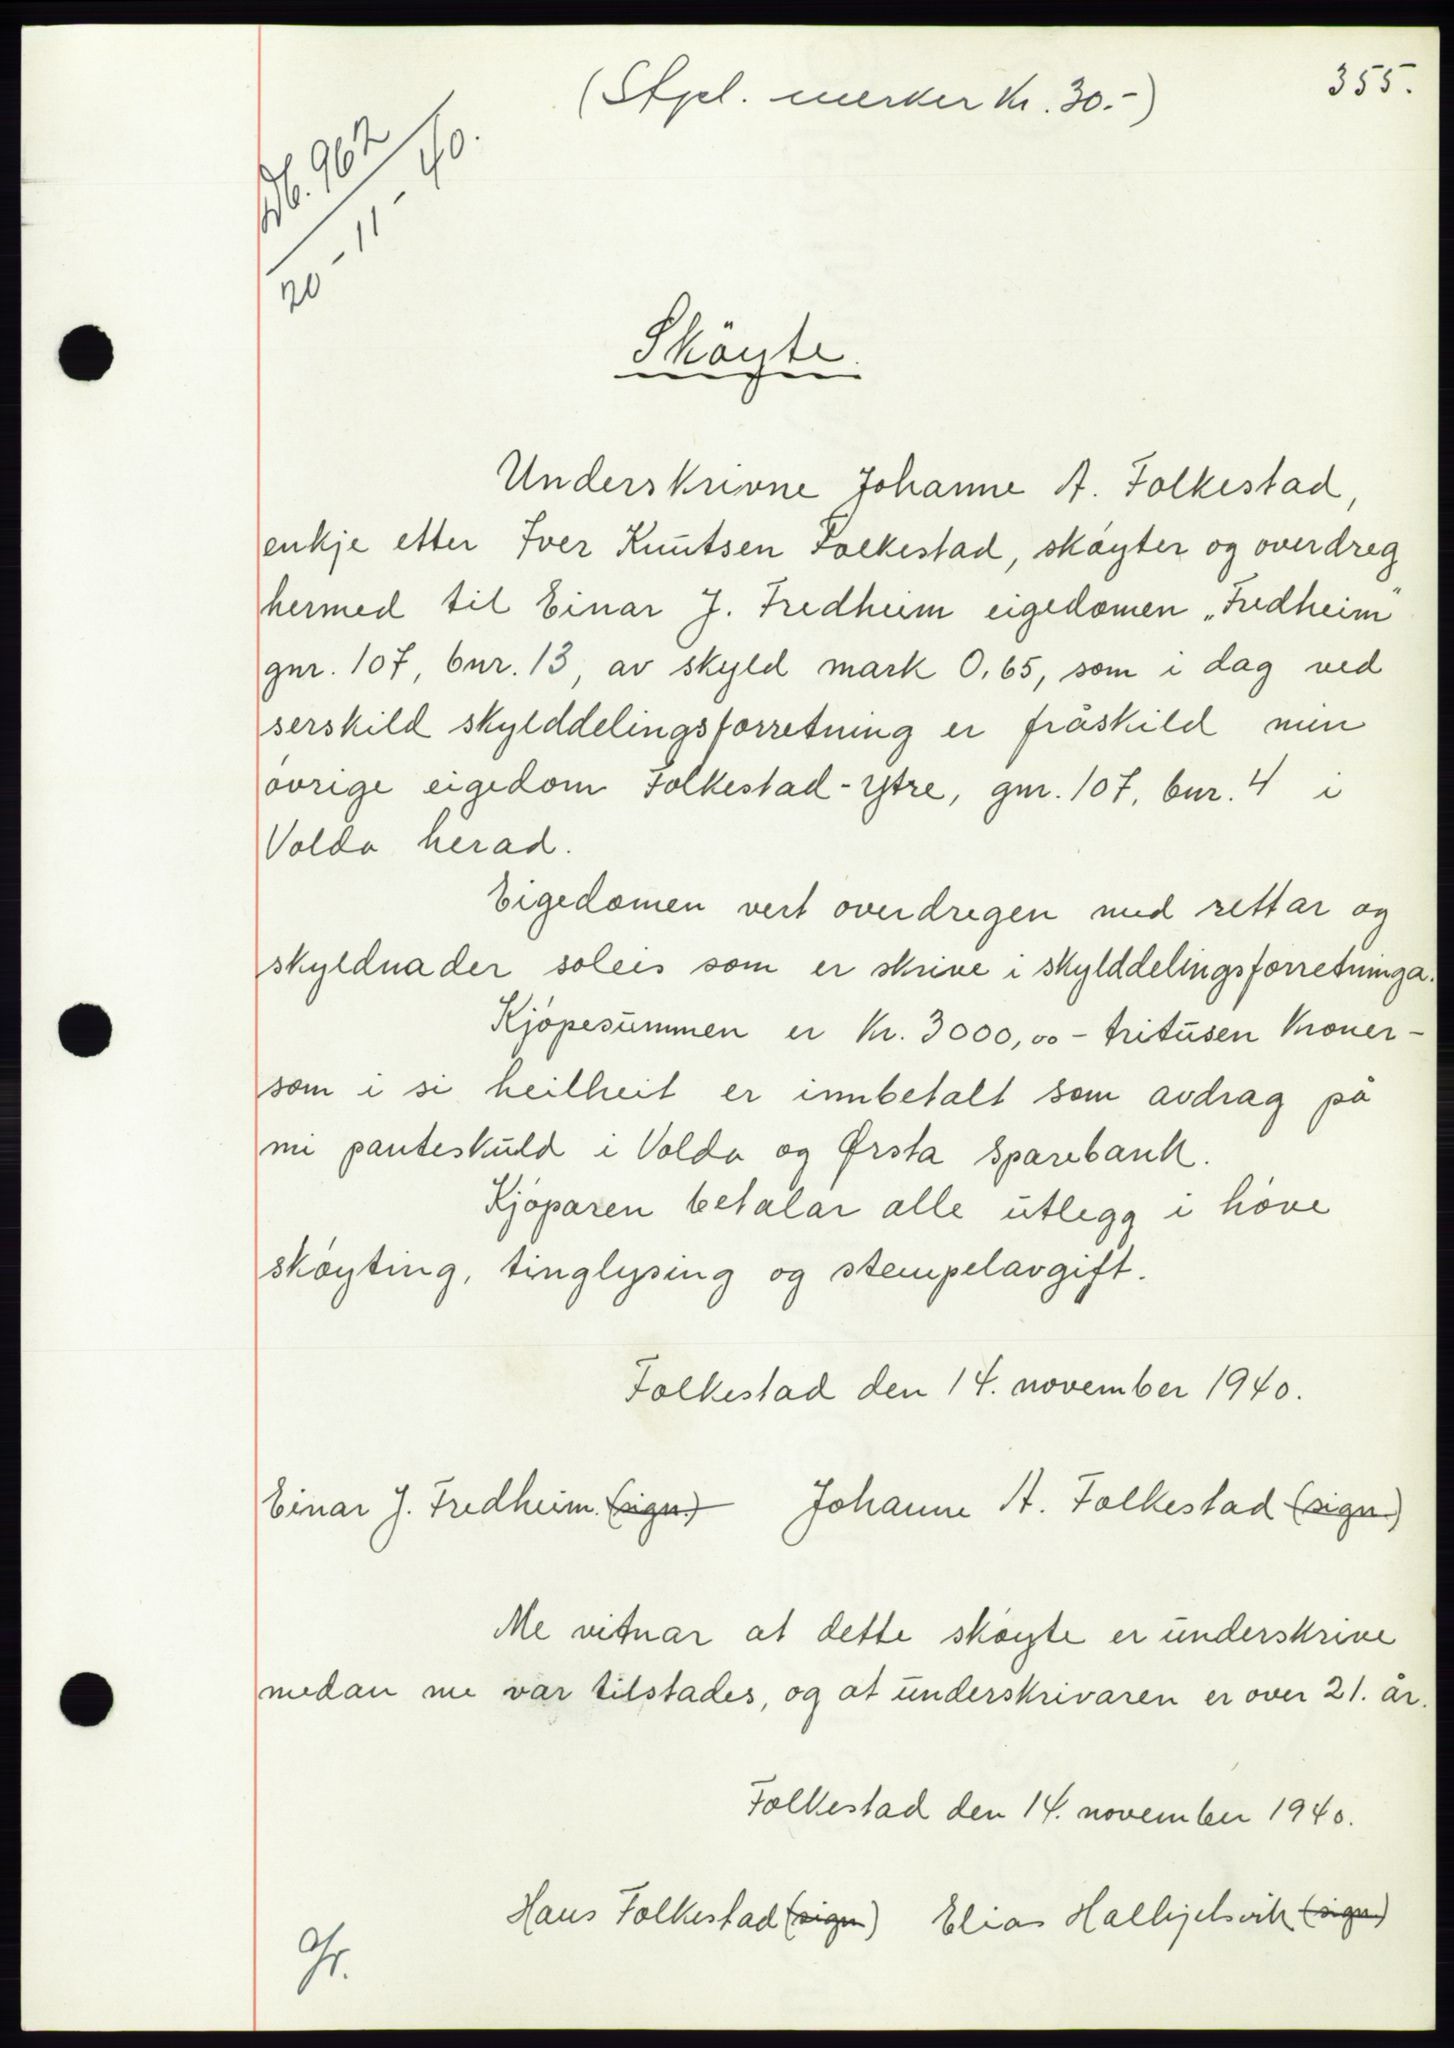 355.
(Stpl. merker kr. 30.-)
Db. 962
20 - 11 - 40.
Sköyte.
Underskrivne Johanne A. Folkestad,
enkje etter Iver Knutsen Folkestad, skóyter og overdreg
hermed til Einar J. Fredheim eigedomen „Fredheim"
gnr. 107, bnr. 13, av skyld mark 0,65, som i dag ved
serskild skylddelingsforretning er fråskild min
óvrige eigedom Folkestad-Ytre, gnr. 107, bnr. 4 i
Volda herad.
Eigedomen vert overdregen med rettar og
skyldnader soleis som er skrive i skylddelingsforretninga.
Kjópesummen er kr. 3000,00 - tritusen kroner -
som i si heilheit er innbetalt som avdrag på
mi panteskuld i Volda og Ørsta Sparebank.
Kjóparen betalar alle utlegg i hóve
skóyting, tinglysing og stempelavgift.
Folkestad den 14. november 1940.
Einar J. Fredheim. (sign.) Johanne A. Folkestad (sign.)
Me vitnar at dette skóyte er underskrive
medan me var tilstades, og at underskrivaren er over 21. år.
Folkestad den 14. november 1940.
Hans Folkestad (sign) Elias Halkjelsvik (sign.)